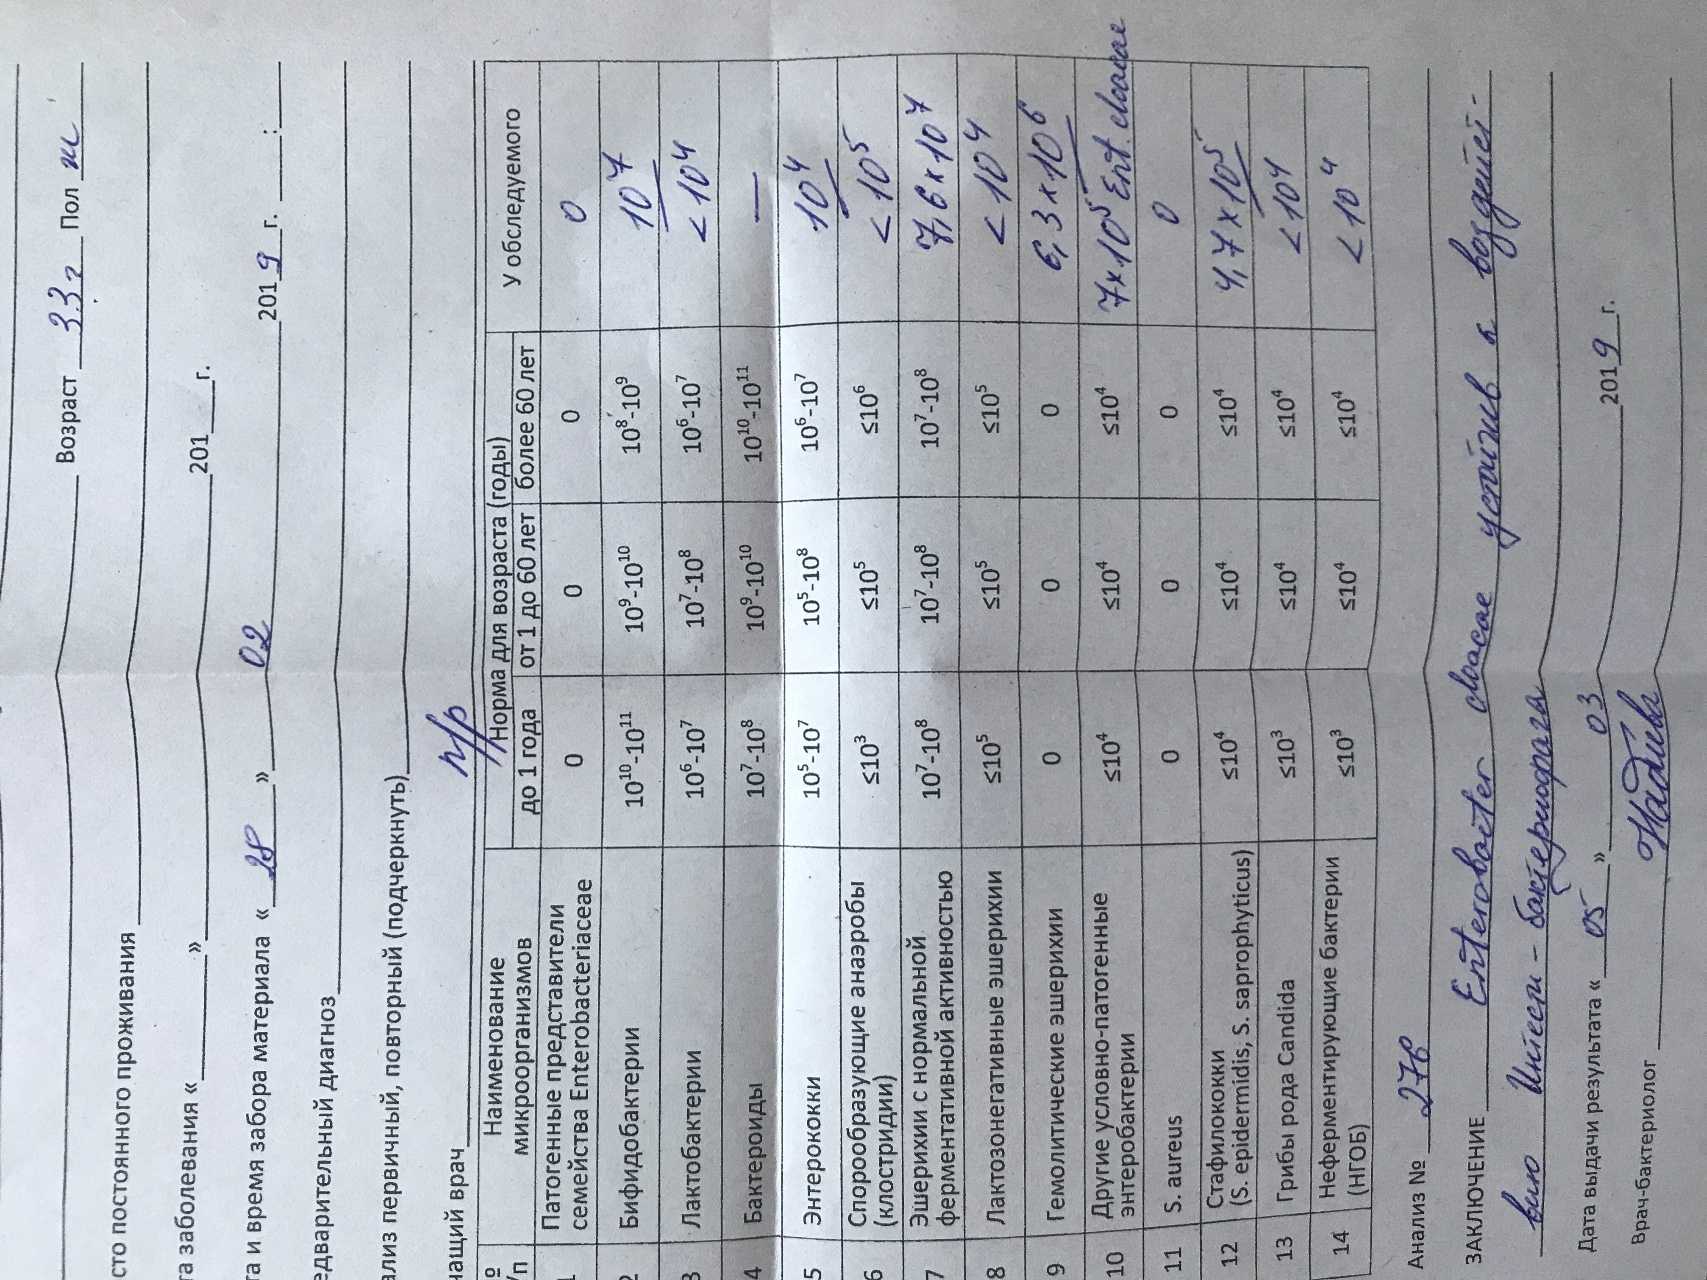 Возраст 33г Пол ж
сто постоянного проживания
та заболевания «____»____201__г.
та и время забора материала «28» 02 2019 г. ___:___
едварительный диагноз
ализ первичный, повторный (подчеркнуть)
чащий врач п/р
№ п/п Наименование микроорганизмов Норма для возраста (годы) У обследуемого
до 1 года от 1 до 60 лет более 60 лет
1 Патогенные представители семейства Enterobacteriaceae 0 0 0 0
2 Бифидобактерии 10¹⁰-10¹¹ 10⁹-10¹⁰ 10⁸-10⁹ 10⁷
3 Лактобактерии 10⁶-10⁷ 10⁷-10⁸ 10⁶-10⁷ <10⁴
4 Бактероиды 10⁷-10⁸ 10⁹-10¹⁰ 10¹⁰-10¹¹ —
5 Энтерококки 10⁵-10⁷ 10⁵-10⁸ 10⁶-10⁷ 10⁴
6 Спорообразующие анаэробы (клостридии) ≤10³ ≤10⁵ ≤10⁶ <10⁵
7 Эшерихии с нормальной ферментативной активностью 10⁷-10⁸ 10⁷-10⁸ 10⁷-10⁸ 7,6×10⁷
8 Лактозонегативные эшерихии ≤10⁵ ≤10⁵ ≤10⁵ <10⁴
9 Гемолитические эшерихии 0 0 0 6,3×10⁶
10 Другие условно-патогенные энтеробактерии ≤10⁴ ≤10⁴ ≤10⁴ 7×10⁵ Ent. cloacae
11 S. aureus 0 0 0 0
12 Стафилококки (S. epidermidis, S. saprophyticus) ≤10⁴ ≤10⁴ ≤10⁴ 4,7×10⁵
13 Грибы рода Candida ≤10³ ≤10⁴ ≤10⁴ <10⁴
14 Неферментирующие бактерии (НГОБ) ≤10³ ≤10⁴ ≤10⁴ <10⁴
Анализ №
ЗАКЛЮЧЕНИЕ Enterobacter cloacae устойчив к воздей-
вию Интести-бактериофага
Дата выдачи результата «05» 03 2019 г.
Врач-бактериолог